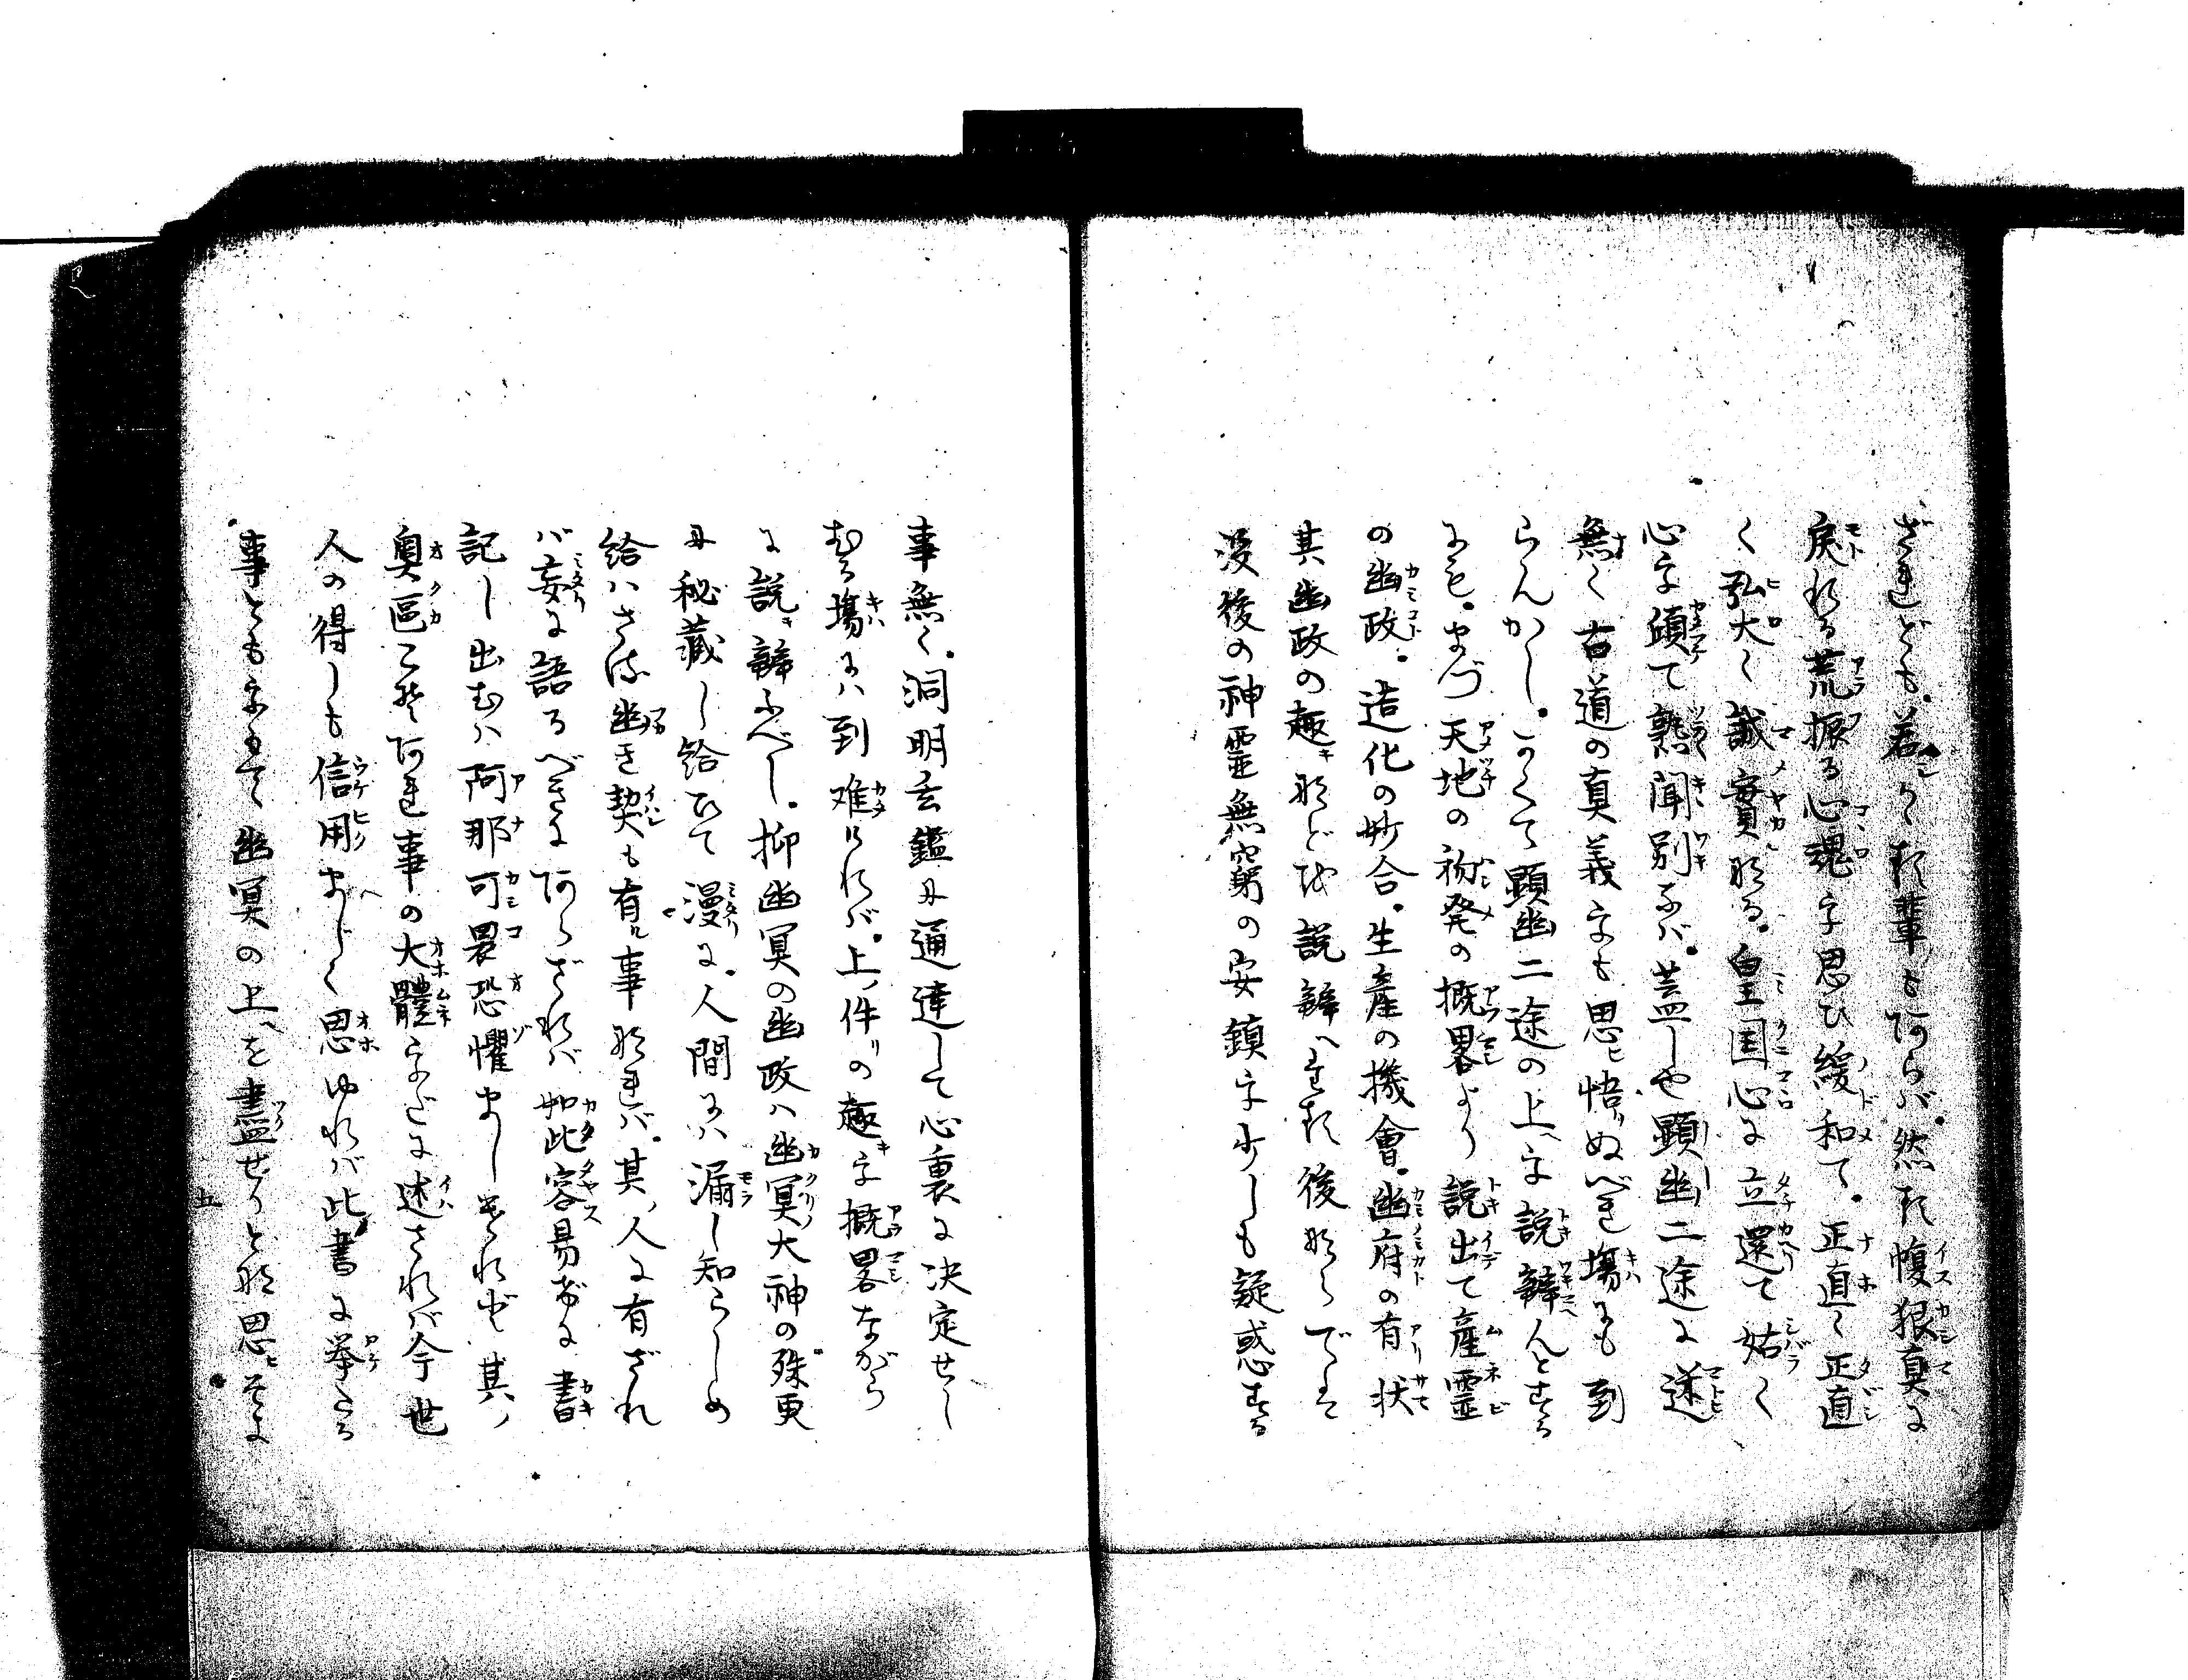 ざれども。若かく有輩も阿らバ。然る愎狠真に
戻れる荒振る心魂を思ひ緩和て。正直く正直
く弘大く誠實なる。皇国心に立還て姑く
心を傾て熟聞別ふバ。蓋しや顕幽二途に迷
無く古道の真義をも思ヒ悟りぬべき塲にも到
らんかし。かくて顕幽二途の上ヘを説辨んとする
にも。まづ天地の初発の概畧より説出て産霊
の幽政。造化の妙合。生産の機會。幽府の有状
其幽政の趣キなどを説辨へたる後ならでは
没後の神霊無窮の安鎮を少しも疑惑する
事無く。洞明玄鑑に通達して心裏に決定せし
むる塲にハ到難けれバ。上ノ件リの趣キを概畧ながら
に説キ辨ふべし。抑幽冥の幽政ハ幽冥大神の殊更
に秘蔵し給ひて漫に。人間にハ漏し知らしめ
給ハざる幽き契も有ル事なれバ。其ノ人に有ざれ
バ妄に語るべきに阿らざれバ如此容易げに書
記し出むハ阿那可畏恐懼ましけれど其ノ
奥區こそ阿れ事の大體をだに述ざれバ今世
人の得しも信用まじく思ゆれバ此書に挙たる
事ともをもて幽冥の上ヘを盡せりとな思ヒそよ
五